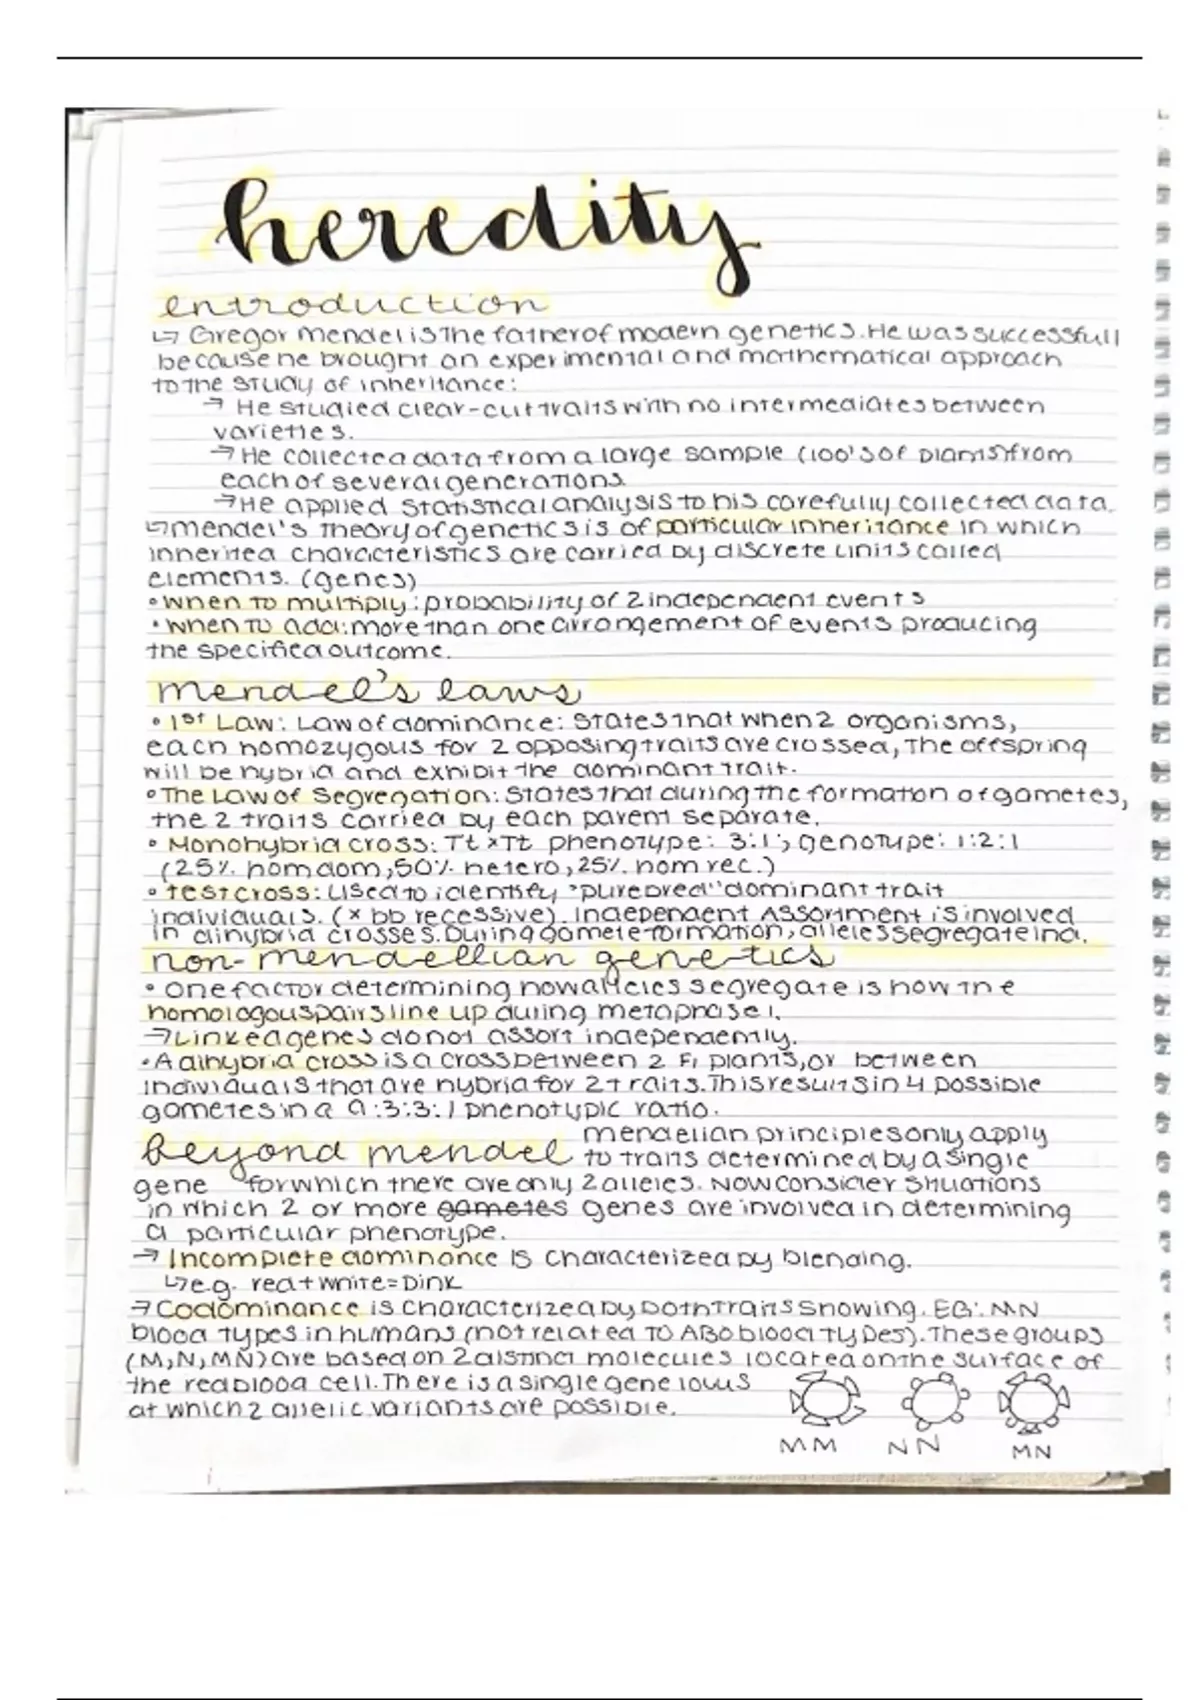 heredity
introduction
↳ Gregor Mendel is the father of modern genetics. He was successfull
because he brought an experimental and mathematical approach
to the study of inheritance:
→ He studied clear-cut traits with no intermediates between
varieties.
→ He collected data from a large sample (100's of plants) from
each of several generations.
→ He applied statistical analysis to his carefully collected data.
↳ mendel's theory of genetics is of particular inheritance in which
inherited characteristics are carried by discrete units called
elements. (genes)
• When to multiply: probability of 2 independent events
• When to add: more than one arrangement of events producing
the specified outcome.
mendel's laws
• 1st Law: Law of dominance: States that when 2 organisms,
each homozygous for 2 opposing traits are crossed, the offspring
will be hybrid and exhibit the dominant trait.
• The Law of Segregation: States that during the formation of gametes,
the 2 traits carried by each parent separate.
• Monohybrid cross: Tt × Tt phenotype: 3:1; genotype: 1:2:1
(25% hom dom, 50% hetero, 25% hom rec.)
• testcross: Used to identify "purebred" dominant trait
individuals. (× bb recessive). Independent Assortment is involved
in dihybrid crosses. During gamete formation, alleles segregate ind.
non-mendellian genetics
• One factor determining how alleles segregate is how the
homologous pairs line up during metaphase 1.
→ Linked genes do not assort independently.
• A dihybrid cross is a cross between 2 F1 plants, or between
individuals that are hybrid for 2 traits. This results in 4 possible
gametes in a 9:3:3:1 phenotypic ratio.
beyond mendel mendelian principles only apply
to traits determined by a single
gene for which there are only 2 alleles. Now consider situations
in which 2 or more gametes genes are involved in determining
a particular phenotype.
→ Incomplete dominance is characterized by blending.
↳ e.g. red + white = pink
→ Codominance is characterized by both traits showing. EG: MN
blood types in humans (not related to ABO blood types). These groups
(M, N, MN) are based on 2 distinct molecules located on the surface of
the red blood cell. There is a single gene locus
at which 2 allelic variants are possible.
MM NN MN